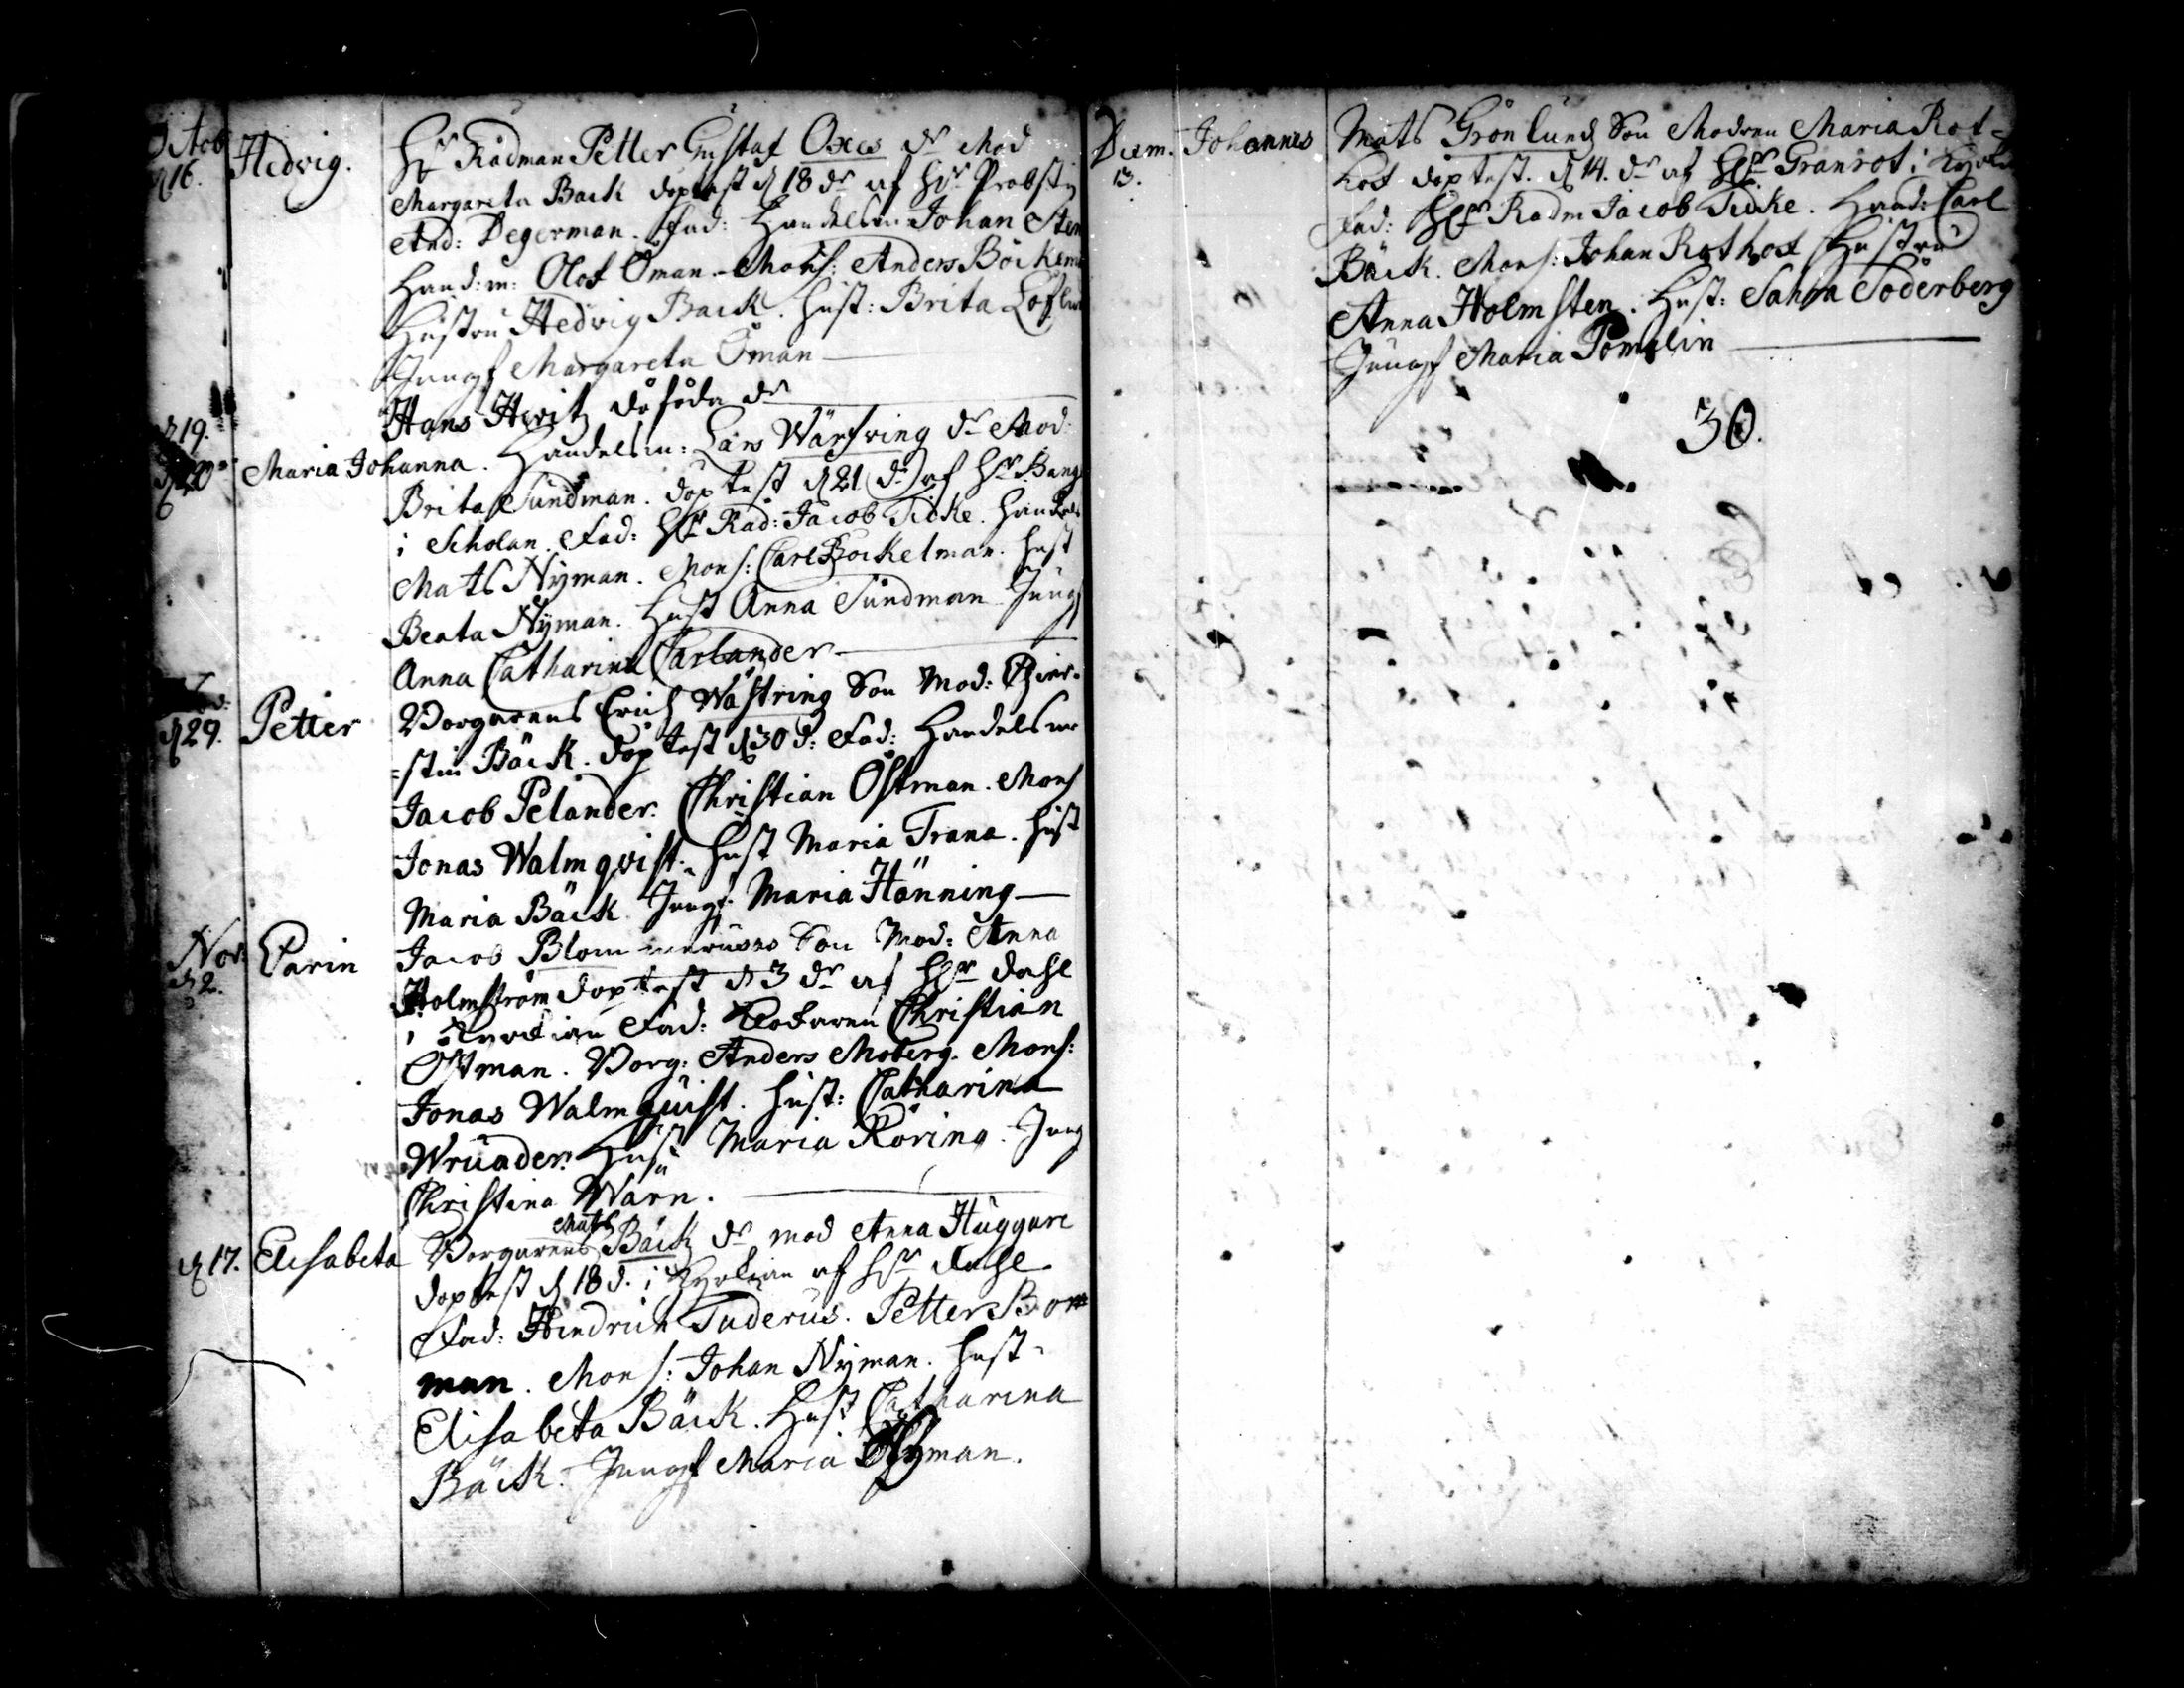 Octob
d 16. Hedvig. Hr Rådman Petter Gustaf Oxes dr Mod
Margareta Back döptest d 18 dr af Hr Probstn
And: Degerman. Fad: Handelsm Johan Sten
Hand:m: Olof Öman. Mons: Anders Böckem
Hustru Hedvig Back. Hust: Brita Löflu
Jungf Margareta Öman
d 19. Hans Hwitz döföda dr
d 20 Maria Johanna. Handelsm: Lars Wärfving dr Mod:
Brita Sundman. döptest d 21 dr af Hr Bang
i Scholan. Fad: Hr Råd: Jacob Tidke. Handels
Mats Nyman. Mons: Carl Bockelman. Hust
Beata Nyman. Hust Anna Sundman Jungf
Anna Catharina Carlander
d 29. Petter Borgarens Erich Wästring Son Mod: Chier-
=stin Bäck. döptest d 30 d: Fad: Handelsm
Jacob Pelander. Christian Östman. Mons
Jonas Walmqvist. Hust Maria Trana. Hust
Maria Bäck Jungf. Maria Hänning
Nov:
d 2. Carin Jacob Blom Son Mod: Anna
Holmström döptest d 3 dr af Hr dahl
i Fad: Christian
Östman. Borg: Anders Moberg. Mons:
Jonas Walmquist. Hust: Catharina
Wruader. Hust Maria Röring. Jung
Christina Wärn.
d 17. Elisabeta Borgarens Mats Bäck dr mod Anna Huggare
döptest d 18 d. i Kyrkian af Hr dahl
Fad: Hindrich Tuderus. Petter Bom
man. Mons: Johan Nyman. Hust
Elisabeta Bäck. Hust Catharina
Bäck. Jungf Maria Nyman.
Decem.
13. Johannes Mats Grönlunds Son Modren Maria Rot=
kot döptest. d 14. dr af Hr Granrot i Kyrki
Fad: Hr Rådm Jacob Tidke. Hand: Carl
Bäck. Mons: Johan Rothot Hustru
Anna Holmsten. Hust: Sahra Söderberg
Jungf Maria Pomelin
30.